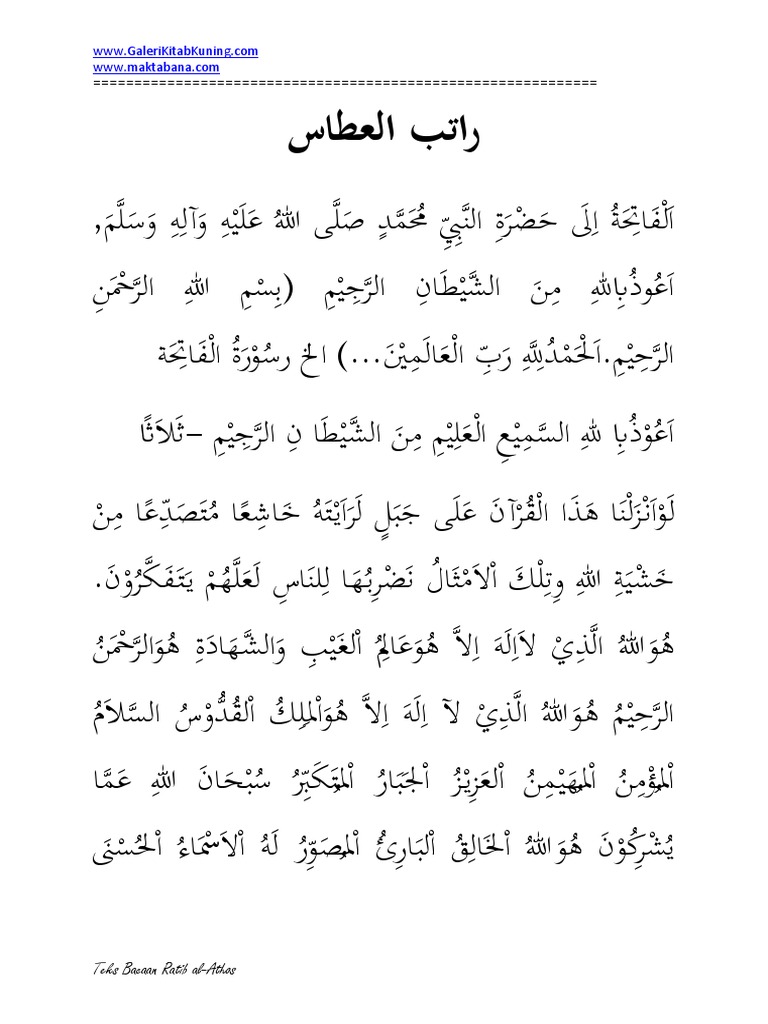 www.GaleriKitabKuning.com
www.maktabana.com
=============================================================
راتب العطاس
اَلْفَاتِحَةُ اِلَى حَضْرَةِ النَّبِيِّ مُحَمَّدٍ صَلَّى اللهُ عَلَيْهِ وَآلِهِ وَسَلَّمَ,
اَعُوذُبِاللهِ مِنَ الشَّيْطَانِ الرَّجِيْمِ (بِسْمِ اللهِ الرَّحْمَنِ
الرَّحِيْمِ.اَلْحَمْدُلِلَّهِ رَبِّ الْعَالَمِيْنَ...) الخ رسُوْرَةُ الْفَاتِحَة
اَعُوْذُبِا للهِ السَّمِيْعِ الْعَلِيْمِ مِنَ الشَّيْطَا نِ الرَّجِيْمِ –ثَلاَثًا
لَوْاَنْزَلْنَا هَذَا الْقُرْآنَ عَلَى جَبَلٍ لَرَاَيْتَهُ خَاشِعًا مُتَصَدِّعًا مِنْ
خَشْيَةِ اللهِ وِتِلْكَ اْلاَمْثَالُ نَضْرِبُهَا لِلنَاسِ لَعَلَّهُمْ يَتَفَكَّرُوْنَ.
هُوَاللهُ الَّذِيْ لاَاِلَهَ اِلاَّ هُوَعَالِمُ اْلغَيْبِ وَالشَّهَادَةِ هُوَالرَّحْمَنُ
الرَّحِيْمُ هُوَاللهُ الَّذِيْ لآ اِلَهَ اِلاَّ هُوَاْلمَلِكُ اْلقُدُّوْسُ السَّلاَمُ
اْلمُؤْمِنُ اْلمُهَيْمِنُ اْلعَزِيْزُ اْلجَبَارُ اْلمُتَكَبِّرُ سُبْحَانَ اللهِ عَمَّا
يُشْرِكُوْنَ هُوَاللهُ اْلخَالِقُ اْلبَارِئُ اْلمُصَوِّرُ لَهُ اْلاَسْمَاءُ اْلحُسْنَى
Teks Bacaan Ratib al-Athos